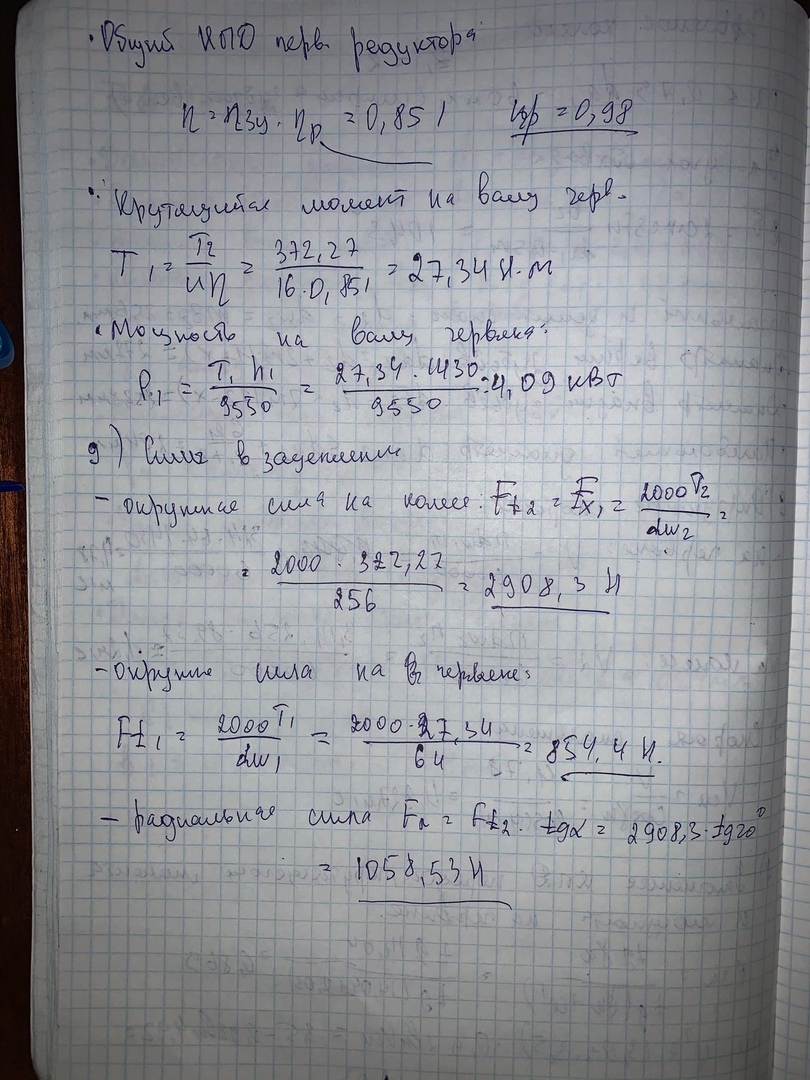 · Общий КПД черв. редуктора
η = ηзу · ηp = 0,851 ηp = 0,98
· Крутящитае момент на валу черв.
T₁ = T₂/uη = 372,27/16·0,851 = 27,34 Н·м
· Мощность на валу червяка:
P₁ = T₁ n₁/9550 = 27,34·1430/9550 = 4,09 кВт
9) Силы в зацеплении
– окружная сила на колесе: Ft₂ = Fx₁ = 2000T₂/dw₂ =
= 2000 · 372,27/256 = 2908,3 Н
– окружне сила на червяке:
Ft₁ = 2000T₁/dw₁ = 2000·27,34/64 = 854,4 Н.
– радиальная сила Fr = Ft₂ · tgα = 2908,3·tg20°
= 1058,53 Н